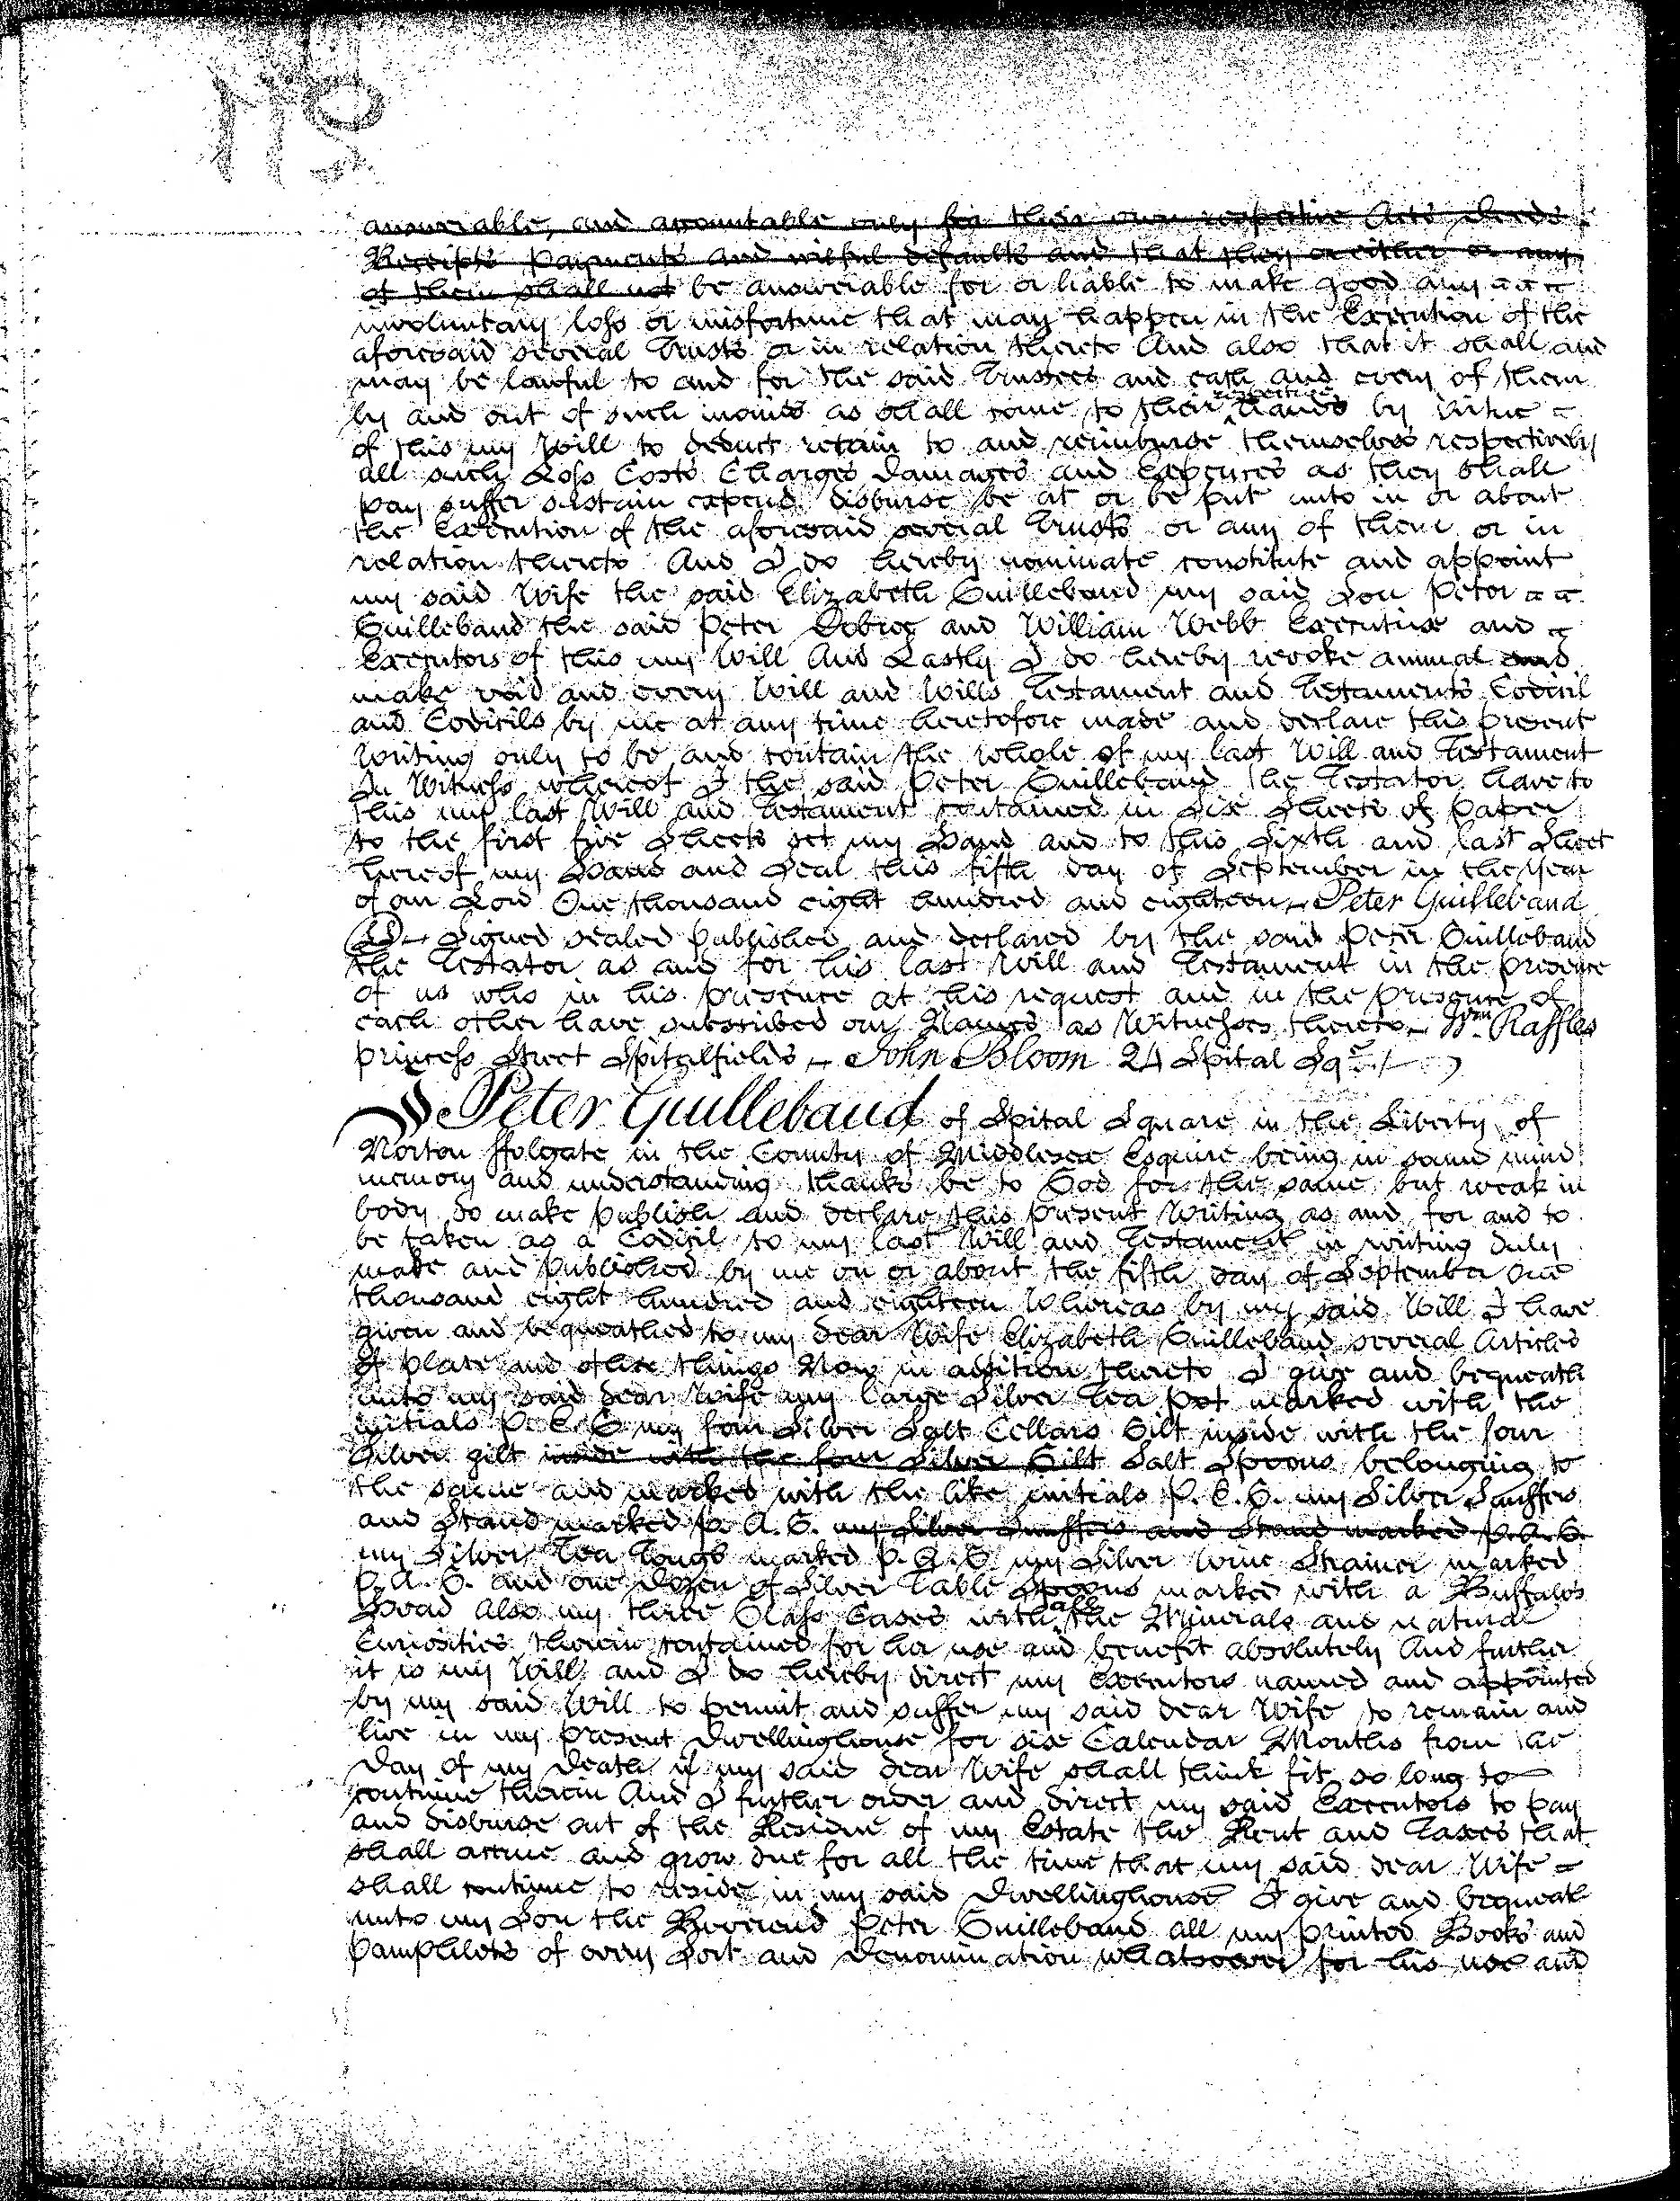 answerable, and accountable only for their own respective Acts Deeds
Receipts Payments and wilful defaults and that they or either or any
of them shall not be answerable for or liable to make good any
involuntary loss or misfortune that may happen in the Execution of the
aforesaid several Trusts or in relation thereto And also that it shall and
may be lawful to and for the said Trustees and each and every of them
by and out of such monies as shall come to their respective hands by virtue
of this my Will to deduct retain to and reimburse themselves respectively
all such Loss Costs Charges Damages and Expences as they shall
pay suffer sustain expend disburse be at or be put unto in or about
the Execution of the aforesaid several Trusts or any of them or in
relation thereto And I do hereby nominate constitute and appoint
my said Wife the said Elizabeth Guillebaud my said Son Peter
Guillebaud the said Peter Dobree and William Webb Executrix and
Executors of this my Will And Lastly I do hereby revoke annual and
make void and every Will and Wills Testament and Testaments Codicil
and Codicils by me at any time heretofore made and declare this present
Writing only to be and contain the whole of my last Will and Testament
In Witness whereof I the said Peter Guillebaud the Testator have to
this my last Will and Testament contained in Six Sheets of Paper
to the first five Sheets set my Hand and to this Sixth and last Sheet
hereof my Hand and Seal this fifth day of September in the Year
of our Lord One thousand eight hundred and eighteen - Peter Guillebaud
LS - Signed sealed published and declared by the said Peter Guillebaud
the Testator as and for his last Will and Testament in the presence
of us who in his presence at his request and in the presence of
each other have subscribed our Names as Witnesses thereto - Wm Raffles
Princess Street Spitalfields - John Bloom 24 Spital Sqr
I Peter Guillebaud of Spital Square in the Liberty of
Norton ffolgate in the County of Middlesex Esquire being in sound mind
memory and understanding thanks be to God for the same but weak in
body do make publish and declare this present Writing as and for and to
be taken as a Codicil to my last Will and Testament in writing duly
made and published by me on or about the fifth day of September One
thousand eight hundred and eighteen Whereas by my said Will I have
given and bequeathed to my dear Wife Elizabeth Guillebaud several Articles
of plate and other things Now in addition thereto I give and bequeath
unto my said dear Wife my large Silver Tea pot marked with the
initials P. E. G. my four Silver Salt Cellars Gilt inside with the four
Silver gilt inside with the four Silver Gilt Salt Spoons belonging to
the same and marked with the like initials P. E. G. my Silver Snuffers
and Stand marked P. A. G. my Silver Snuffers and Stand marked P. A. G.
my Silver Tea Tongs marked P. A. G. my Silver Wine Strainer marked
P. A. G. and one dozen of Silver Table Spoons marked with a Buffalo's
Head Also my three Glass Cases with all the Minerals and natural
Curiosities therein contained for her use and benefit absolutely And further
it is my Will and I do hereby direct my Executors named and appointed
by my said Will to permit and suffer my said dear Wife to remain and
live in my present Dwellinghouse for six Calendar Months from the
Day of my Death if my said dear Wife shall think fit so long to
continue therein And I further order and direct my said Executors to pay
and disburse out of the Residue of my Estate the Rent and Taxes that
shall accrue and grow due for all the time that my said dear Wife
shall continue to reside in my said Dwellinghouse I give and bequeath
unto my Son the Reverend Peter Guillebaud all my printed Books and
Pamphlets of every Sort and Denomination whatsoever for his use and